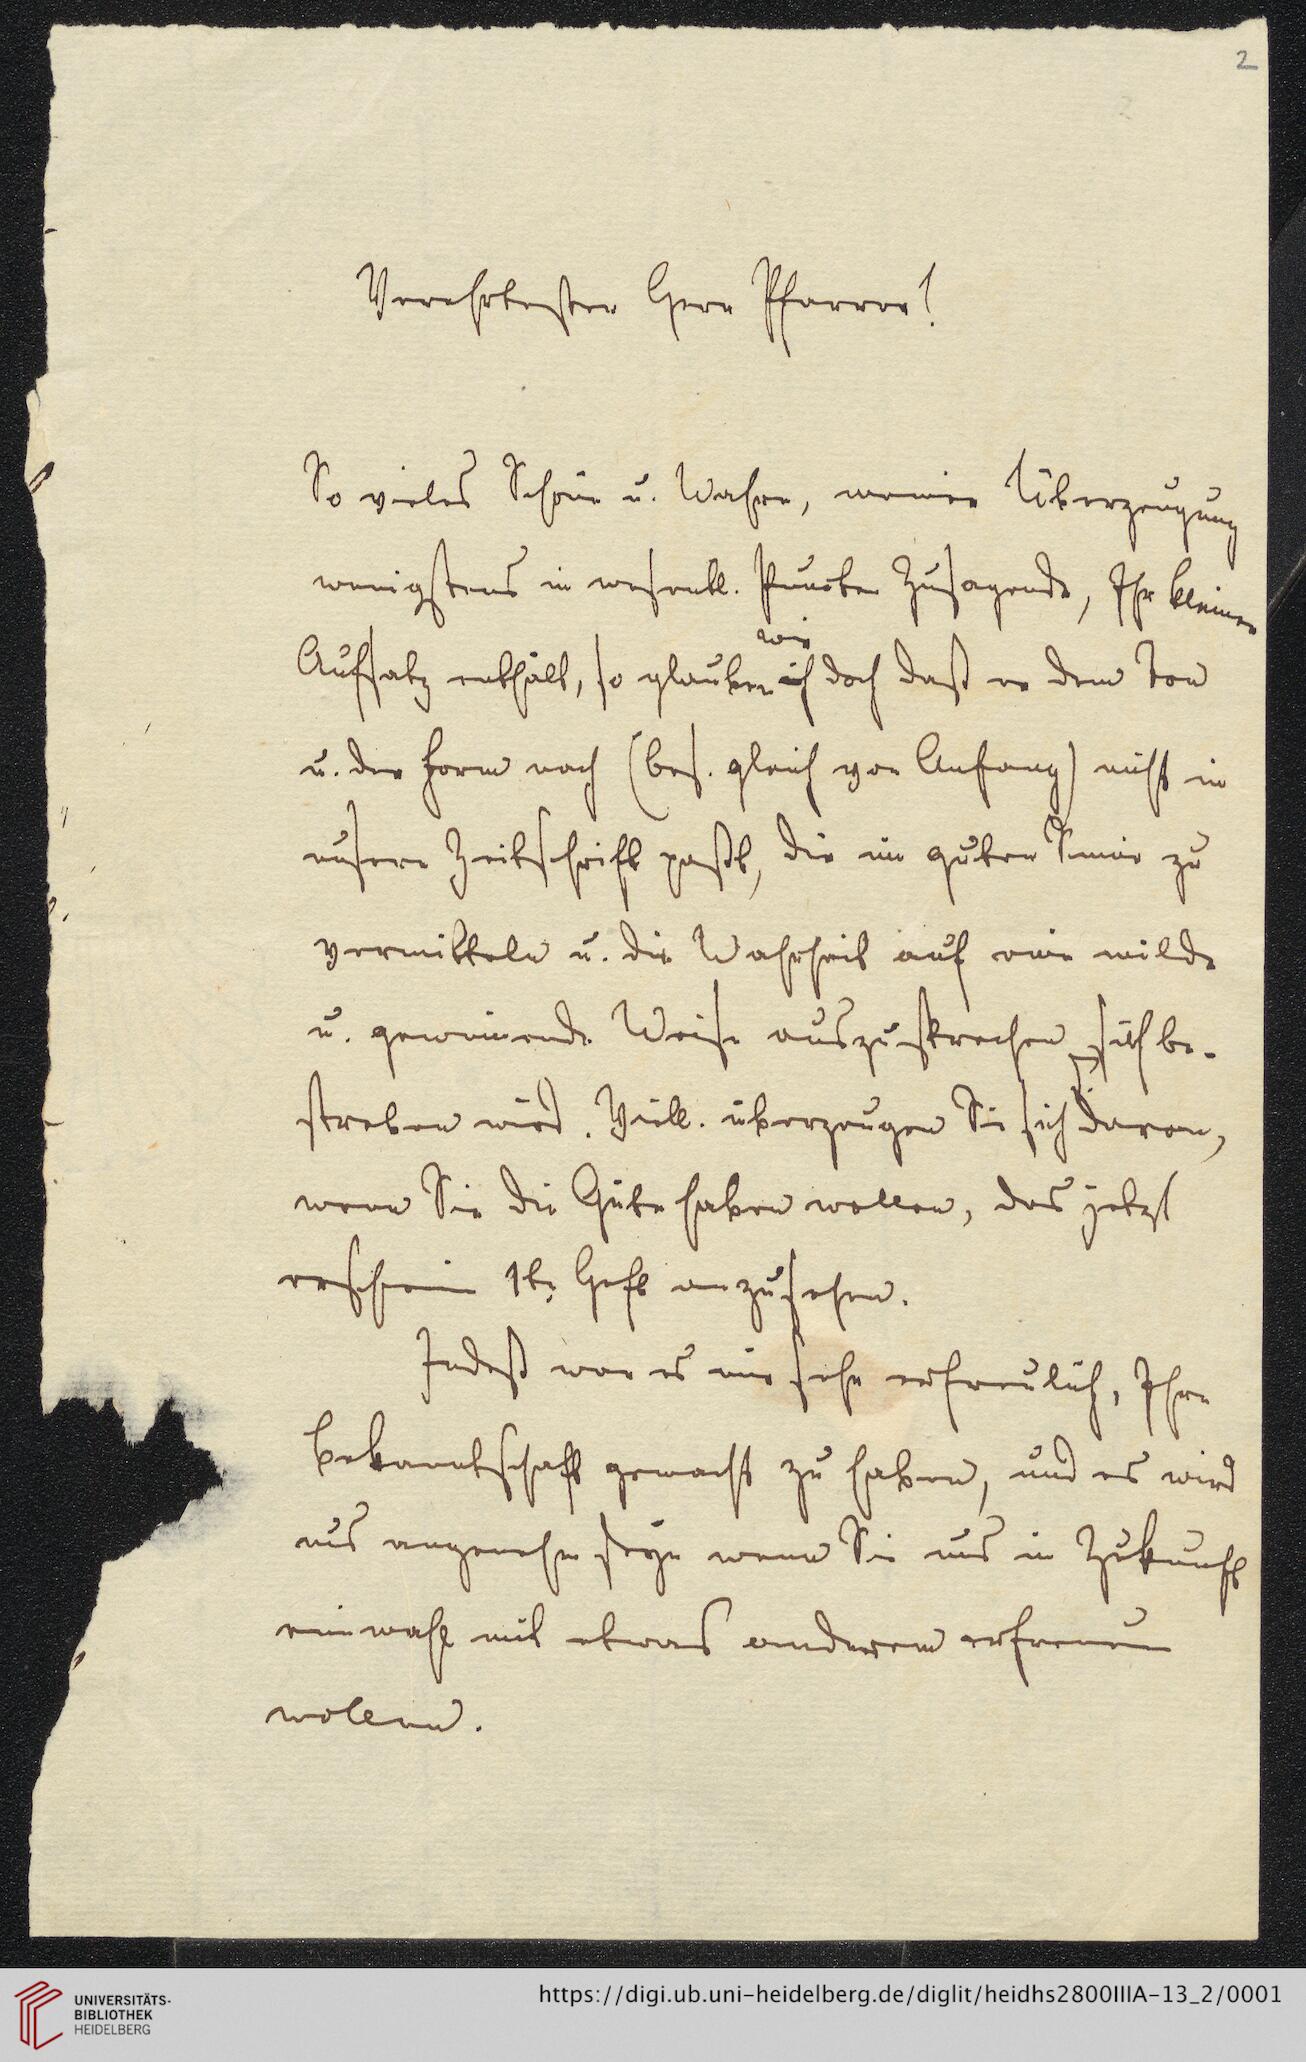 2
Verehrtester Herr Pfarrer!
So vieles Schöne u. Wahre, meiner Überzeugung
wenigstens in wesentl. Puncten Zusagende, Ihr kleiner
wir
Aufsatz enthält, so glauben ich doch daß er dem Ton
u. der Form nach (bes. gleich vor Anfang) nicht in
unsere Zeitschrift paßt, die im guten Sinne zu
vermitteln u. die Wahrheit auf eine milde
u. gewinnende Weise auszusprechen sich be-
streben wird. Viell. überzeugen Sie sich davon,
wenn Sie die Güte haben wollen, das jetzt
erschein 1te Heft anzusehen.
Indeß war es mir sehr erfreulich, Ihre
Bekanntschaft gemacht zu haben, und es wird
uns angenehm seyn wenn Sie uns in Zukunft
einmahl mit etwas anderem erfreuen
wollen.
UNIVERSITÄTS-
BIBLIOTHEK
HEIDELBERG
https://digi.ub.uni-heidelberg.de/diglit/heidhs2800IIIA-13_2/0001